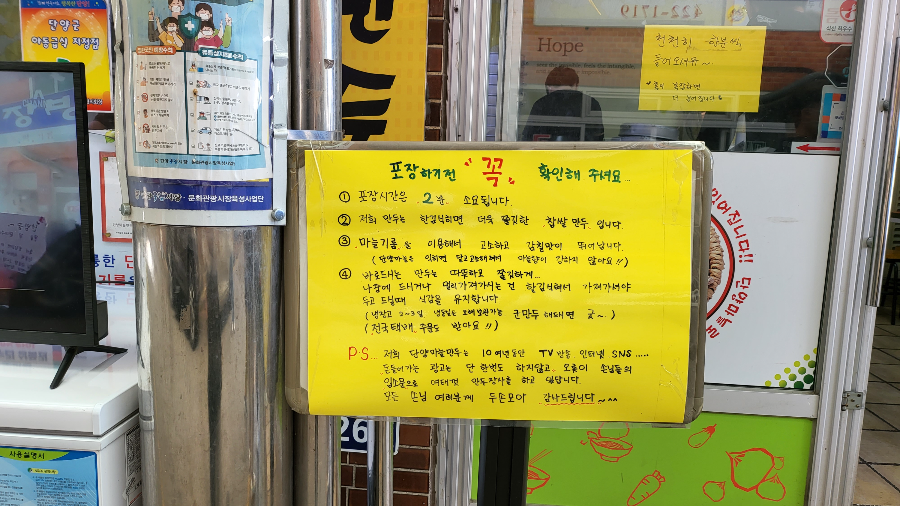 단양군
아동급식 지정점
422-1719
Hope
천천히 한분씩
들어오세요~
포장하기전 "꼭" 확인해 주세요...
① 포장시간은 2분 소요됩니다.
② 저희 만두는 한김식히면 더욱 쫄깃한 찹쌀만두 입니다.
③ 마늘기름을 이용해서 고소하고 감칠맛이 뛰어납니다.
(단양마늘은 익히면 달고 고소해져서 마늘향이 강하지 않아요!!)
④ 바로드시는 만두는 따뜻하고 쫄깃하게...
나중에 드시거나 멀리가져가시는 건 한김식혀서 가져가셔야
두고 드실때 식감을 유지합니다
(냉장고 2~3일 냉동실은 오래보관가능 군만두 해드시면 굿~.)
(전국택배 주문도 받아요!!)
P.S... 저희 단양마늘만두는 10여년동안 TV 방송 인터넷 SNS.....
돈들어가는 광고는 단 한번도 하지않고 오늘이 손님들의
입소문으로 여태껏 만두장사를 하고 있답니다.
모든 손님 여러분께 두손모아 감사드립니다~^^
문화관광시장육성사업단
26
사용설명서
단양마늘